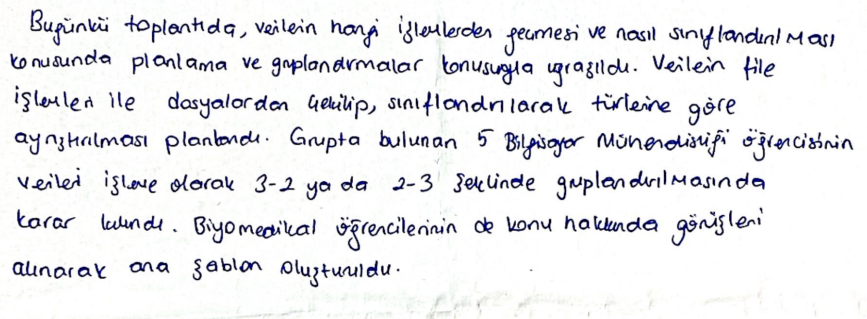 Bugünkü toplantıda, verilerin hangi işlemlerden geçmesi ve nasıl sınıflandırılması
konusunda planlama ve gruplandırmalar konusuyla uğraşıldı. Verilerin file
işlemleri ile dosyalardan çekilip, sınıflandırılarak türlerine göre
ayrıştırılması planlandı. Grupta bulunan 5 Bilgisayar Mühendisliği öğrencisinin
verileri işleme olarak 3-2 ya da 2-3 şeklinde gruplandırılmasında
karar kılındı. Biyomedikal öğrencilerinin de konu hakkında görüşleri
alınarak ana şablon oluşturuldu.